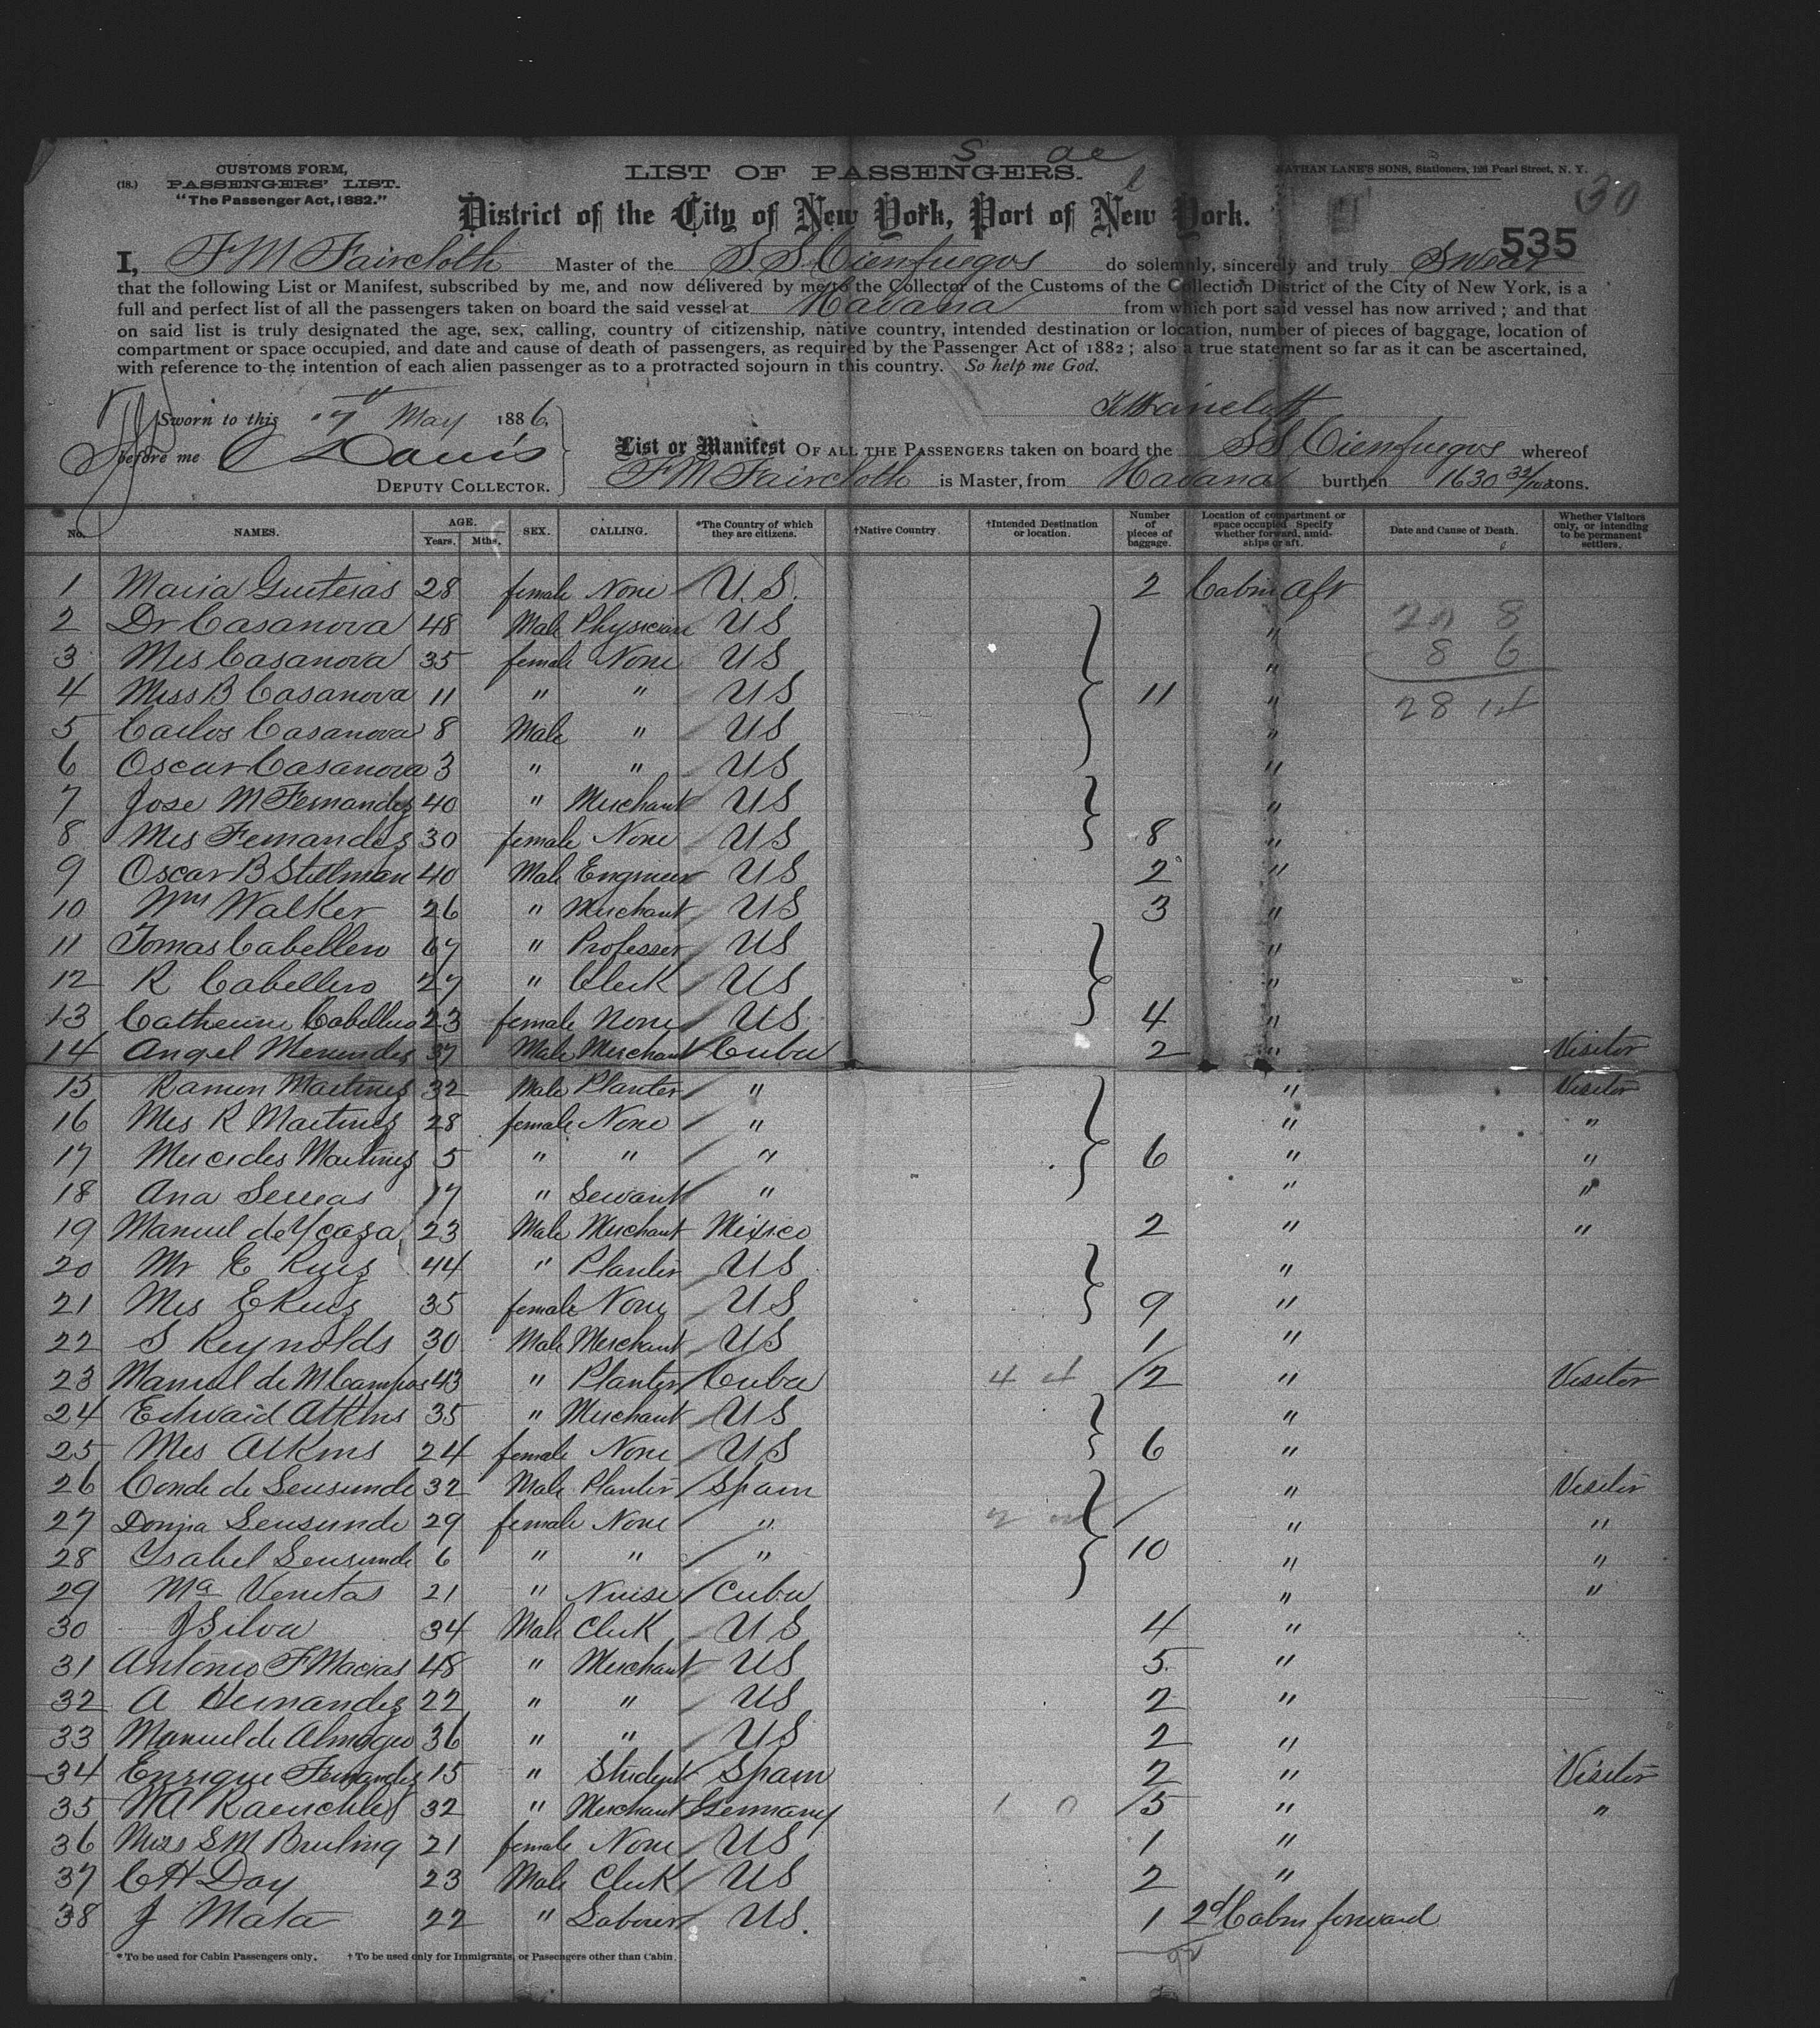 S ae
CUSTOMS FORM,
(18.) PASSENGERS' LIST.
"The Passenger Act, 1882."
LIST OF PASSENGERS.
NATHAN LANE'S SONS, Stationers, 126 Pearl Street, N. Y.
30
District of the City of New York, Port of New York.
535
I, F M Faircloth Master of the S. S. Cienfuegos do solemnly, sincerely and truly Swear
that the following List or Manifest, subscribed by me, and now delivered by me to the Collector of the Customs of the Collection District of the City of New York, is a
full and perfect list of all the passengers taken on board the said vessel at Havana from which port said vessel has now arrived; and that
on said list is truly designated the age, sex, calling, country of citizenship, native country, intended destination or location, number of pieces of baggage, location of
compartment or space occupied, and date and cause of death of passengers, as required by the Passenger Act of 1882; also a true statement so far as it can be ascertained,
with reference to the intention of each alien passenger as to a protracted sojourn in this country. So help me God.
F M Faircloth
Sworn to this 7th May 1886,
before me C Davis
DEPUTY COLLECTOR.
List or Manifest OF ALL THE PASSENGERS taken on board the S S Cienfuegos whereof
F M Faircloth is Master, from Havana burthen 1630 32/100 tons.
No. NAMES. AGE. Years. Mths. SEX. CALLING. *The Country of which they are citizens. †Native Country. †Intended Destination or location. Number of pieces of baggage. Location of compartment or space occupied. Specify whether forward, amidships or aft. Date and Cause of Death. Whether Visitors only, or intending to be permanent settlers.
1 Maria Guiteras 28 female None U.S. 2 Cabin Aft
2 Dr Casanova 48 Male Physician US "
3 Mrs Casanova 35 female None US "
4 Miss B Casanova 11 " " US 11 "
5 Carlos Casanova 8 Male " US "
6 Oscar Casanova 3 " " US "
7 Jose M Fernandez 40 " Merchant US "
8 Mrs Fernandez 30 female None US 8 "
9 Oscar B Stillman 40 Male Engineer US 2 "
10 Wm Walker 26 " Merchant US 3 "
11 Tomas Cabellero 67 " Professor US "
12 R Cabellero 27 " Clerk US "
13 Catherine Cabellero 23 female None US 4 "
14 Angel Menendez 37 Male Merchant Cuba 2 " Visitor
15 Ramon Martinez 32 Male Planter " " Visitor
16 Mrs R Martinez 28 female None " " "
17 Mercedes Martinez 5 " " " 6 " "
18 Ana 17 " Servant " " "
19 Manuel de Ycaza 23 Male Merchant Mexico 2 " "
20 Mr E Ruiz 44 " Planter US "
21 Mrs E Ruiz 35 female None US 9 "
22 S Reynolds 30 Male Merchant US 1 "
23 Manuel de M Campos 43 " Planter Cuba 2 " Visitor
24 Edward Atkins 35 " Merchant US "
25 Mrs Atkins 24 female None US 6 "
26 Conde de Sensunde 32 Male Planter Spain " Visitor
27 Donna Sensunde 29 female None " " "
28 Ysabel Sensunde 6 " " " 10 " "
29 Ma Venitas 21 " Nurse Cuba " "
30 J Silva 34 Male Clerk US 4 "
31 Antonio F Macias 48 " Merchant US 5 "
32 A Hernandez 22 " " US 2 "
33 Manuel de Almagro 36 " " US 2 "
34 Enrique Fernandez 15 " Student Spain 2 " Visitor
35 32 " Merchant Germany 5 " "
36 Miss S M Bruling 21 female None US 1 "
37 C H Day 23 Male Clerk US 2 "
38 J Mata 22 " Laborer US. 1 2d Cabin forward
* To be used for Cabin Passengers only. † To be used only for Immigrants, or Passengers other than Cabin.